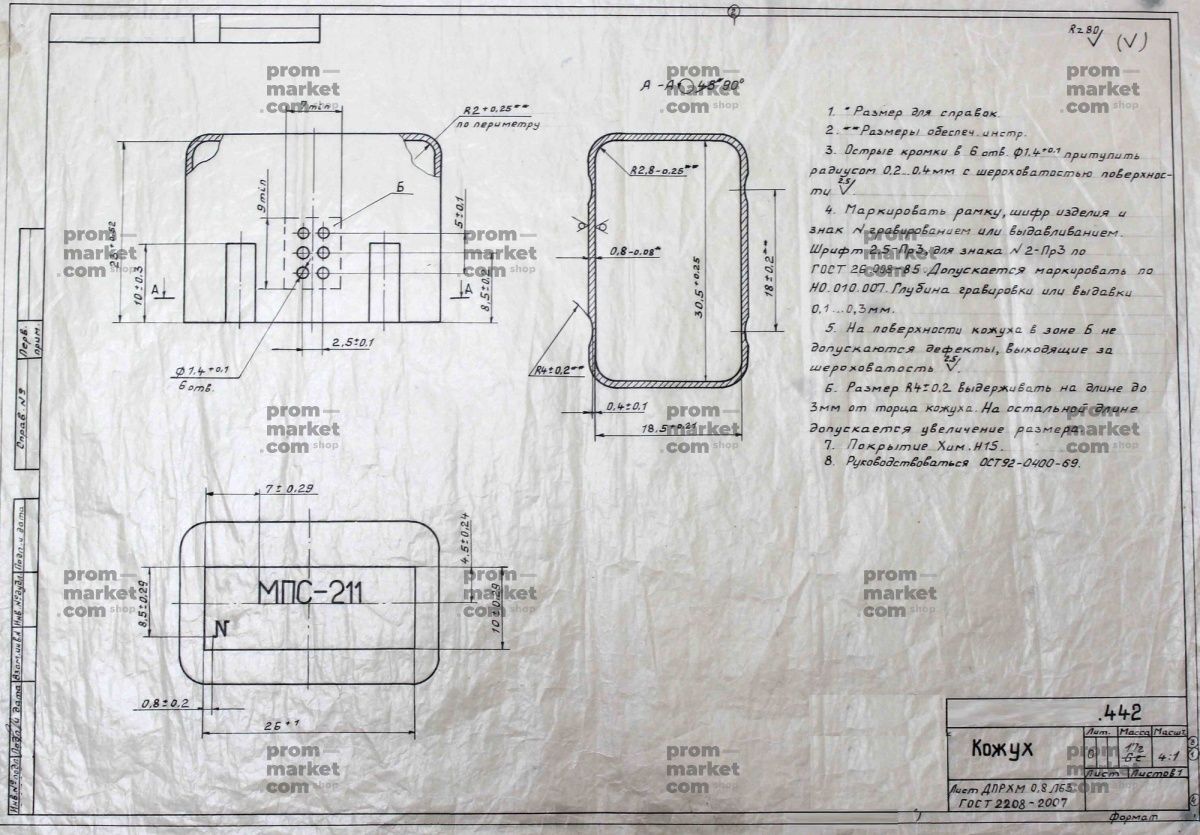 Rz80 (√)
7 min
R2+0,25**
по периметру
А-А 45° 90°
9 min
Б
5±0,1
10±0,3
А
А
8,5±0,2
2,5±0,1
ϕ1,4+0,1
6 отв.
R2,8-0,25**
0,8-0,08*
30,5+0,25
18±0,2**
R4±0,2**
0,4±0,1
18,5+0,21
1. * Размер для справок.
2. ** Размеры обеспеч. инстр.
3. Острые кромки в 6 отв. ϕ1,4+0,1 притупить
радиусом 0,2...0,4мм с шероховатостью поверхнос-
ти 2,5√
4. Маркировать рамку, шифр изделия и
знак N гравированием или выдавливанием.
Шрифт 2,5-Пр3, для знака N 2-Пр3 по
ГОСТ 26.008-85. Допускается маркировать по
Н0.010.007. Глубина гравировки или выдавки
0,1...0,3мм.
5. На поверхности кожуха в зоне Б не
допускаются дефекты, выходящие за
шероховатость 2,5√.
6. Размер R4±0,2 выдерживать на длине до
3мм от торца кожуха. На остальной длине
допускается увеличение размера.
7. Покрытие Хим. Н15.
8. Руководствоваться ОСТ92-0400-69.
7±0,29
4,5±0,24
8,5±0,29
МПС-211
N
10±0,29
0,8±0,2
26+1
Перв. прим.
Справ. №
Подп. и дата
Инв. № дубл.
Взам. инв. №
Подп. и дата
Инв. № подл.
.442
Кожух
Лит. Масса Масшт.
4:1
Лист Листов 1
Лист ДПРХМ 0,8 Л63
ГОСТ 2208-2007
Формат
prom—
market
.com shop
prom—
market
.com shop
prom—
market
.com shop
prom—
market
.com shop
prom—
market
.com shop
prom—
market
.com shop
prom—
market
.com shop
prom—
market
.com shop
prom—
market
.com shop
prom—
market
.com shop
prom—
market
.com shop
prom—
market
.com shop